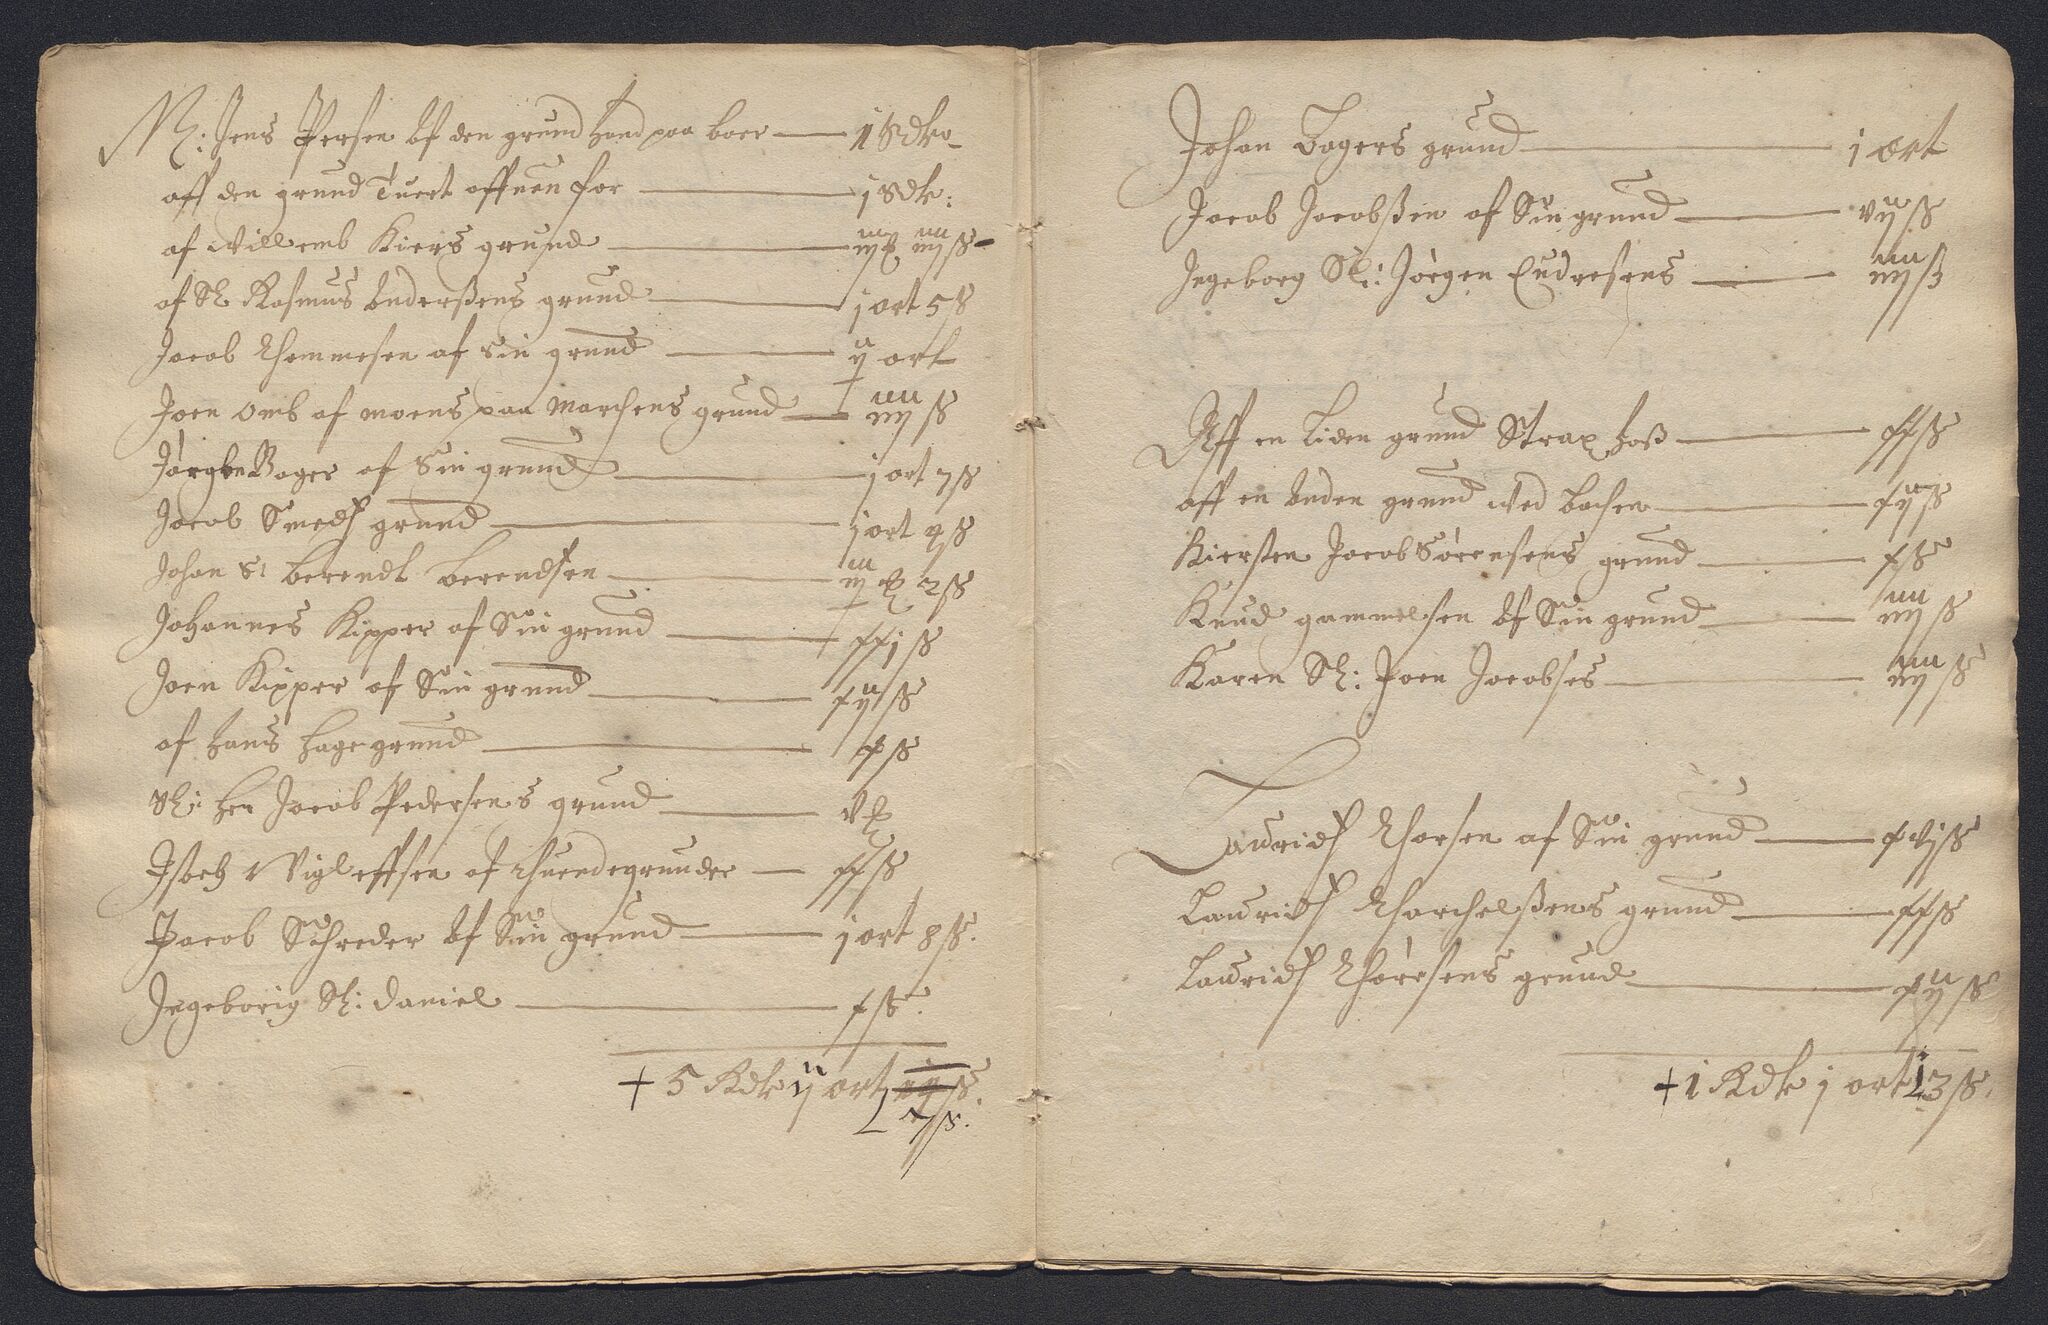 M: Jens Persen af den grund hand paa boer — 1 Rdlr
aff den grund Tuert offuen for — j Rdlr:
af Willemb Kiers grund — iiij ß
af Sl Rasmus Anderßens grund — j ort 5 ß
Jacob Thommesen af Sin grund — ij ort
Joen Omb af moens paa Marchens grund — iiij ß
Jørgen Bager af Sin grund — j ort 7 ß
Jacob Smeds grund — j ort 4 ß
Johan berendt berendsen — 2 ß
Johannes Kipper af Sin grund — xxj ß
Joen Kipper af Sin grund — xij ß
af Hans Hage grund — x ß
Sl: Her Jacob Pedersens grund — v
Isach Vigleffsen af thuende grunder — xx ß
Jacob Schreder af Sin grund — j ort 8 ß.
Ingeborig Sl: Daniel — x ß.
+ 5 Rdlr ij ort
7 ß.
Johan Bagers grund — j ort
Jacob Jacobßen af Sin grund — vij ß
Ingeborg Sl: Jørgen Endresens — iiij ß
Aff en liden grund Strax hoß — xx ß
aff en anden grund ved — xij ß
Kiersten Jacob Sørensens grund — x ß
Knud gammelsen af Sin grund — iiij ß
Karen Sl: Joen Jacobses — iiij ß
Lauridz Thorsen af Sin grund — xvj ß
Lauridz Thorchelßens grund — xx ß
Lauridz Thørresens grund — xij ß
+ 1 Rdlr j ort 13 ß.